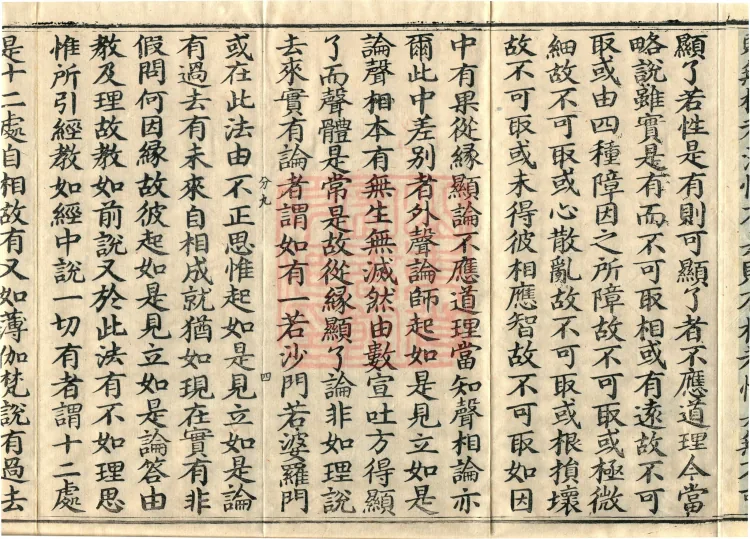 顯了若性是有則可顯了者不應道理今當
略說雖實是有而不可取相或有遠故不可
取或由四種障因之所障故不可取或極微
細故不可取或心散亂故不可取或根損壞
故不可取或未得彼相應智故不可取如因
中有果從緣顯論不應道理當知聲相論亦
爾此中差別者外聲論師起如是見立如是
論聲相本有無生無滅然由數宣吐方得顯
了而聲體是常是故從緣顯了論非如理說
去來實有論者謂如有一若沙門若婆羅門
分九
四
或在此法由不正思惟起如是見立如是論
有過去有未來自相成就猶如現在實有非
假問何因緣故彼起如是見立如是論答由
教及理故教如前說又於此法有不如理思
惟所引經教如經中說一切有者謂十二處
是十二處自相故有又如薄伽梵說有過去